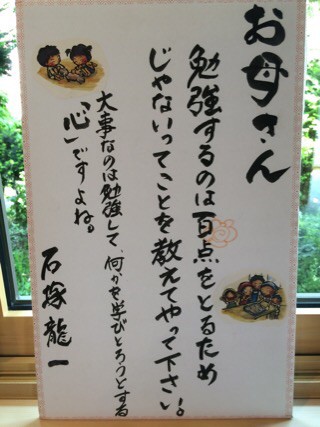 お母さん
勉強するのは百点をとるため
じゃないってことを教えてやって下さい。
大事なのは勉強して、何かを学びとろうとする
「心」ですよね。
石塚龍一